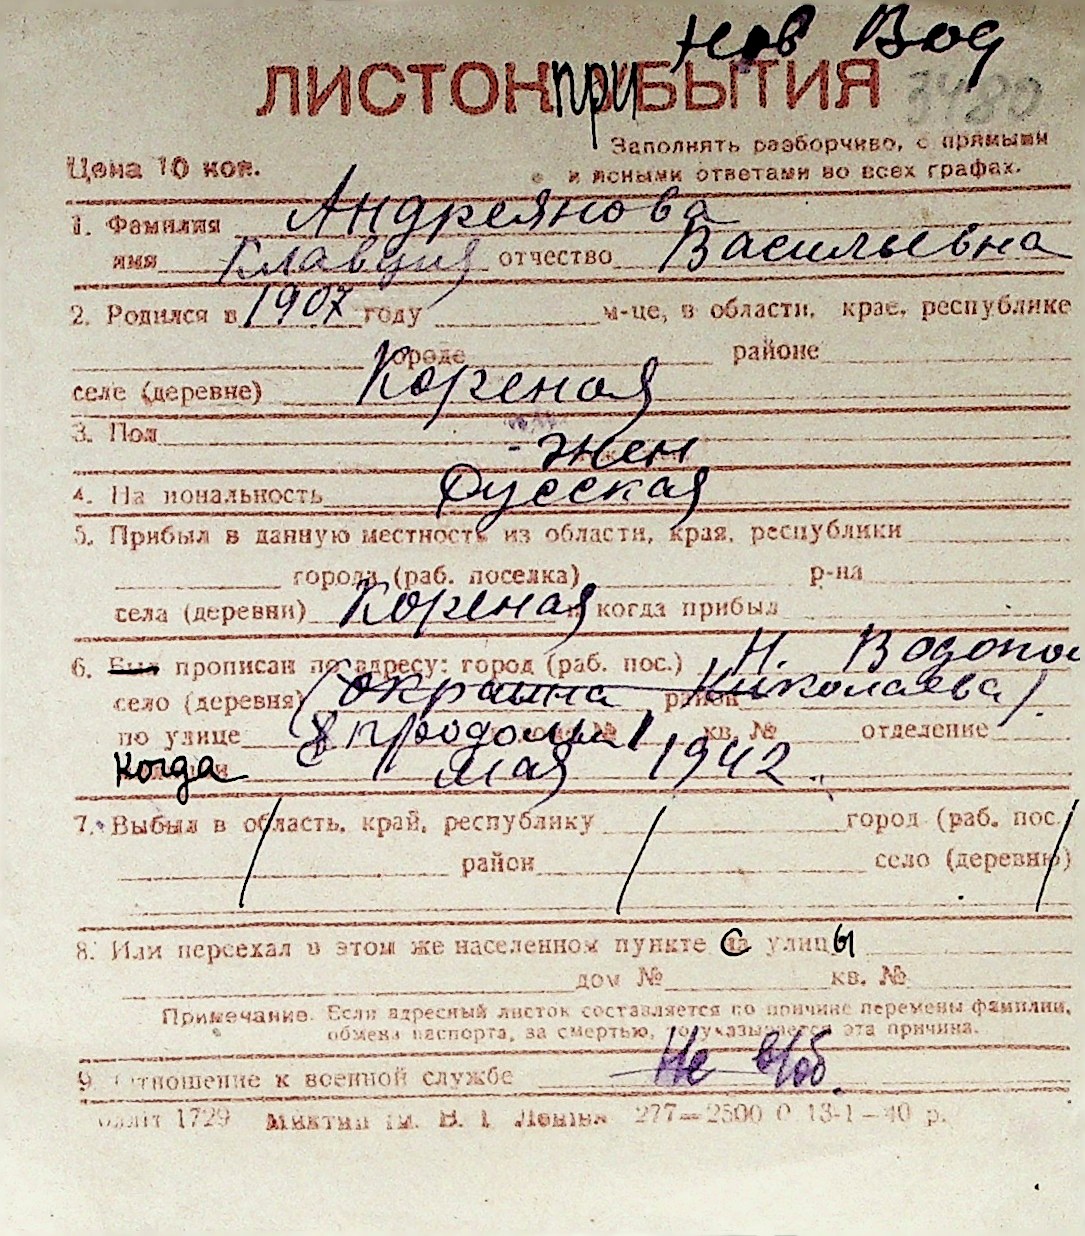 Нов Вод
ЛИСТОК при БЫТИЯ 3480
Заполнять разборчиво, с прямыми
Цена 10 коп. и ясными ответами во всех графах.
1. Фамилия Андреянова
имя Клавдия отчество Васильевна
2. Родился в 1907 году м-це, в области, крае, республике
городе районе
селе (деревне) Кореная
3. Пол - жен
4. Национальность Русская
5. Прибыл в данную местность из области, края, республики
города (раб. поселка) р-на
села (деревни) Кореная и когда прибыл
6. Был прописан по адресу: город (раб. пос.) Н. Водопой
село (деревня) (окраина Николаева) район
по улице 8 продольн кв. № отделение
когда мая 1942
7. Выбыл в область, край, республику город (раб. пос.
район село (деревню)
8. Или переехал в этом же населенном пункте с улицы
дом № кв. №
Примечание. Если адресный листок составляется по причине перемены фамилии,
обмена паспорта, за смертью, то указывается эта причина.
9. Отношение к военной службе Не в/об.
1729 им. В. І. Леніна 277—2500 0 13-1-40 р.